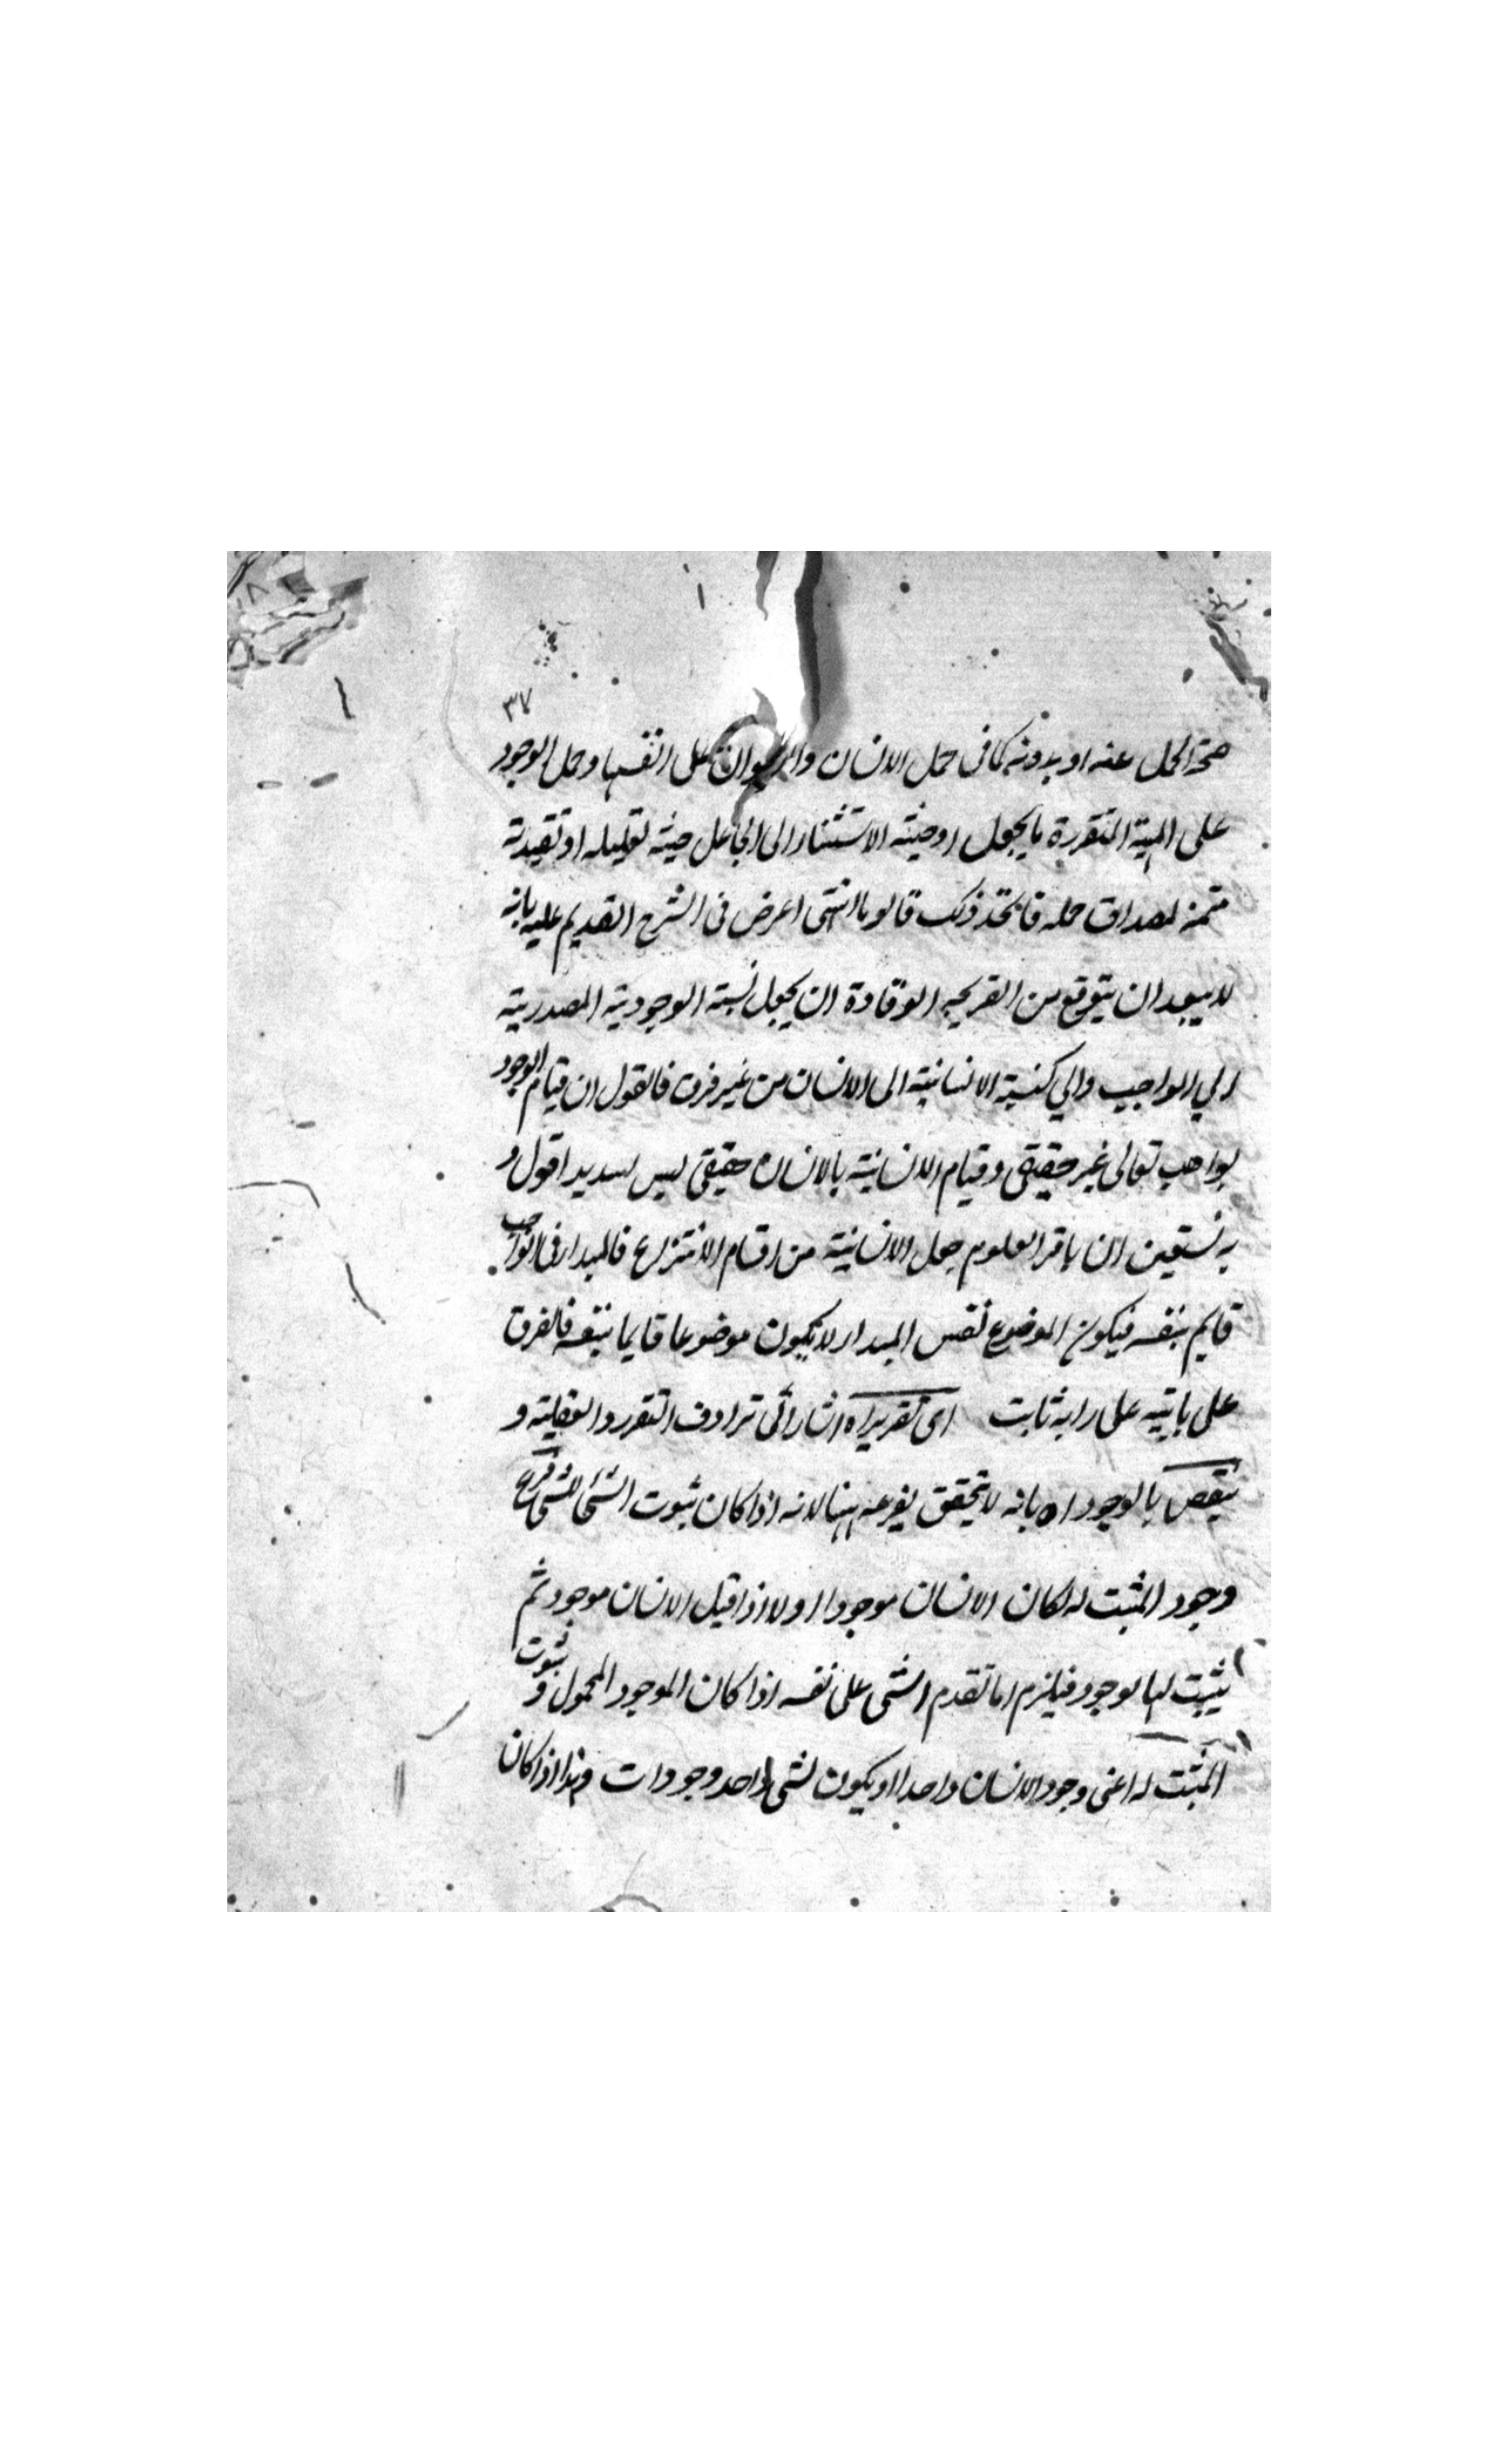 ٣٧
صحة الحمل عنه او بدونه كما فى حمل الانسان والحيوان على انفسها وحمل الوجود
على المهية المتقررة بالجعل او حيثية الاستناد الى الجاعل حيثية تعليلية او تقيدية
متممة لمصداق حمله فاتخذ ذلك قالوبا انتهى اعترض فى الشرح القديم عليه بانه
لا يبعد ان يتوقع من القريحة الوقادة ان يجعل نسبة الوجودية المصدرية
الى الواجب تعالى كنسبة الانسانية الى الانسان من غير فرق فالقول ان قيام الوجود
بواجب تعالى غير حقيقى وقيام الانسانية بالانسان حقيقى ليس بسديد اقول و
به نستعين ان باقر العلوم جعل الانسانية من اقسام الانتزاع فالمبدا فى الواجب
قايم بنفسه فيكون الموضوع نفس المبدا ولا يكون موضوعا قايما بنفسه فالفرق
على بابيته على رابه ثابت اى تقريره اه اشار الى ترادف التقرر والفعلية و
ينقض بالوجود اه بانه لا يتحقق يفرعه ههنا لانه اذا كان ثبوت الشئ للشئ فرع
وجود المثبت له لكان الانسان موجودا اولا اذا قيل الانسان موجود ثم
يثبت لها لوجود فيلزم اما تقدم الشئ على نفسه اذا كان الموجود المحمول و ثبوت
المثبت له اعنى وجود الانسان واحدا او يكون لشئ واحد وجودات وهذا اذا كان